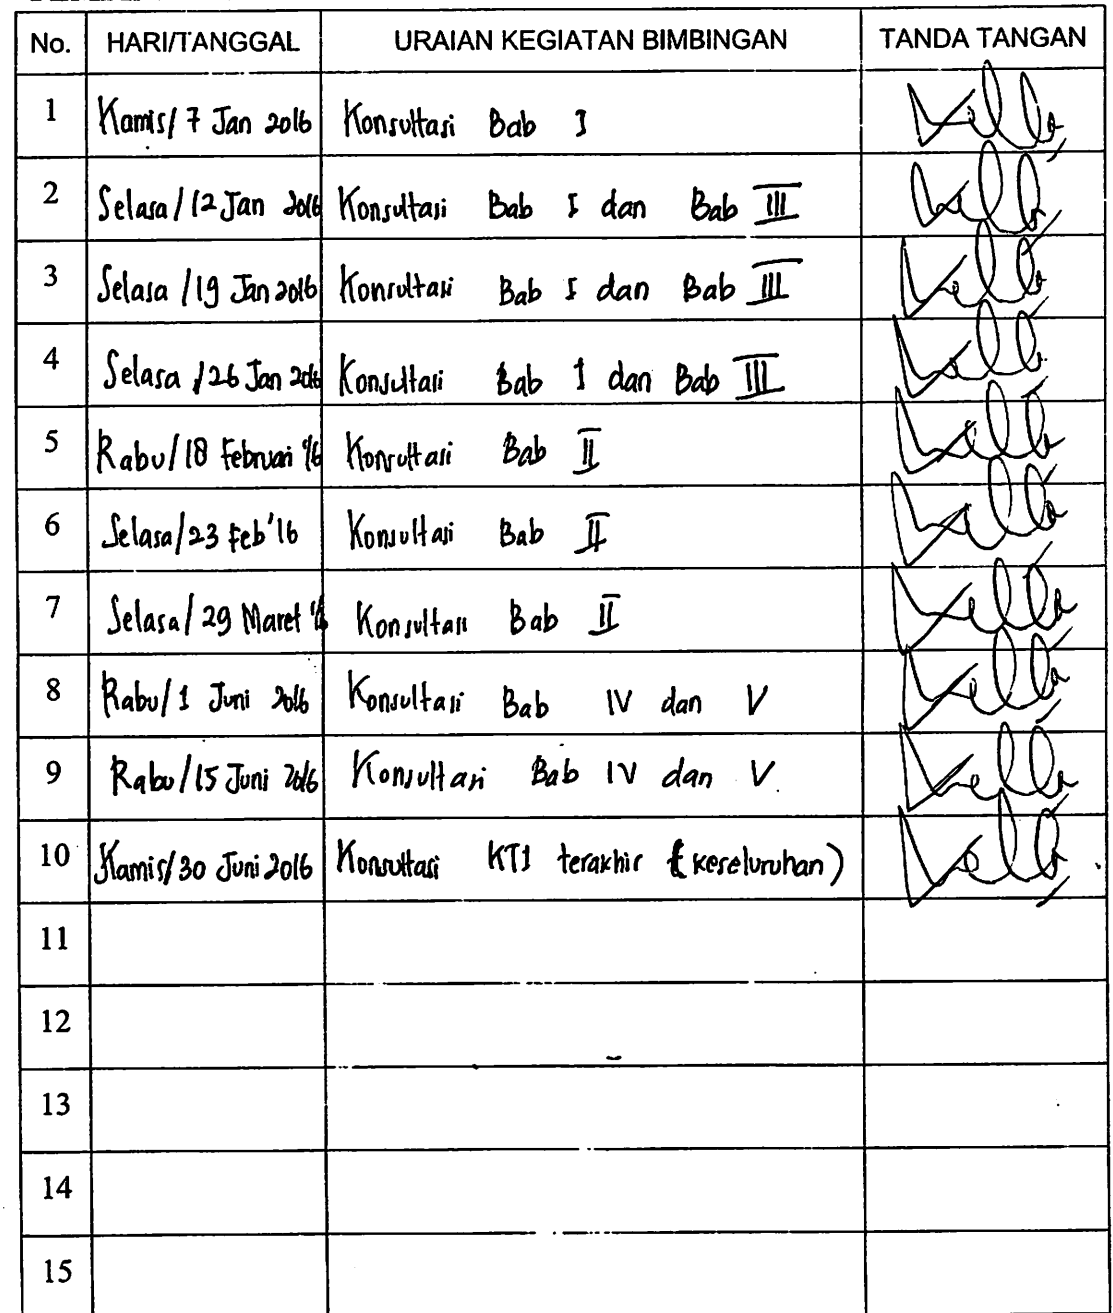 No. HARI/TANGGAL URAIAN KEGIATAN BIMBINGAN TANDA TANGAN
1 Kamis/ 7 Jan 2016 Konsultasi Bab I
2 Selasa/ 12 Jan 2016 Konsultasi Bab I dan Bab III
3 Selasa /19 Jan 2016 Konsultasi Bab I dan Bab III
4 Selasa /26 Jan 2016 Konsultasi Bab I dan Bab III
5 Rabu/ 18 Februari '16 Konsultasi Bab II
6 Selasa/23 Feb'16 Konsultasi Bab II
7 Selasa/ 29 Maret '16 Konsultasi Bab II
8 Rabu/ 1 Juni 2016 Konsultasi Bab IV dan V
9 Rabu/15 Juni 2016 Konsultasi Bab IV dan V
10 Kamis/30 Juni 2016 Konsultasi KTI terakhir (keseluruhan)
11
12
13
14
15